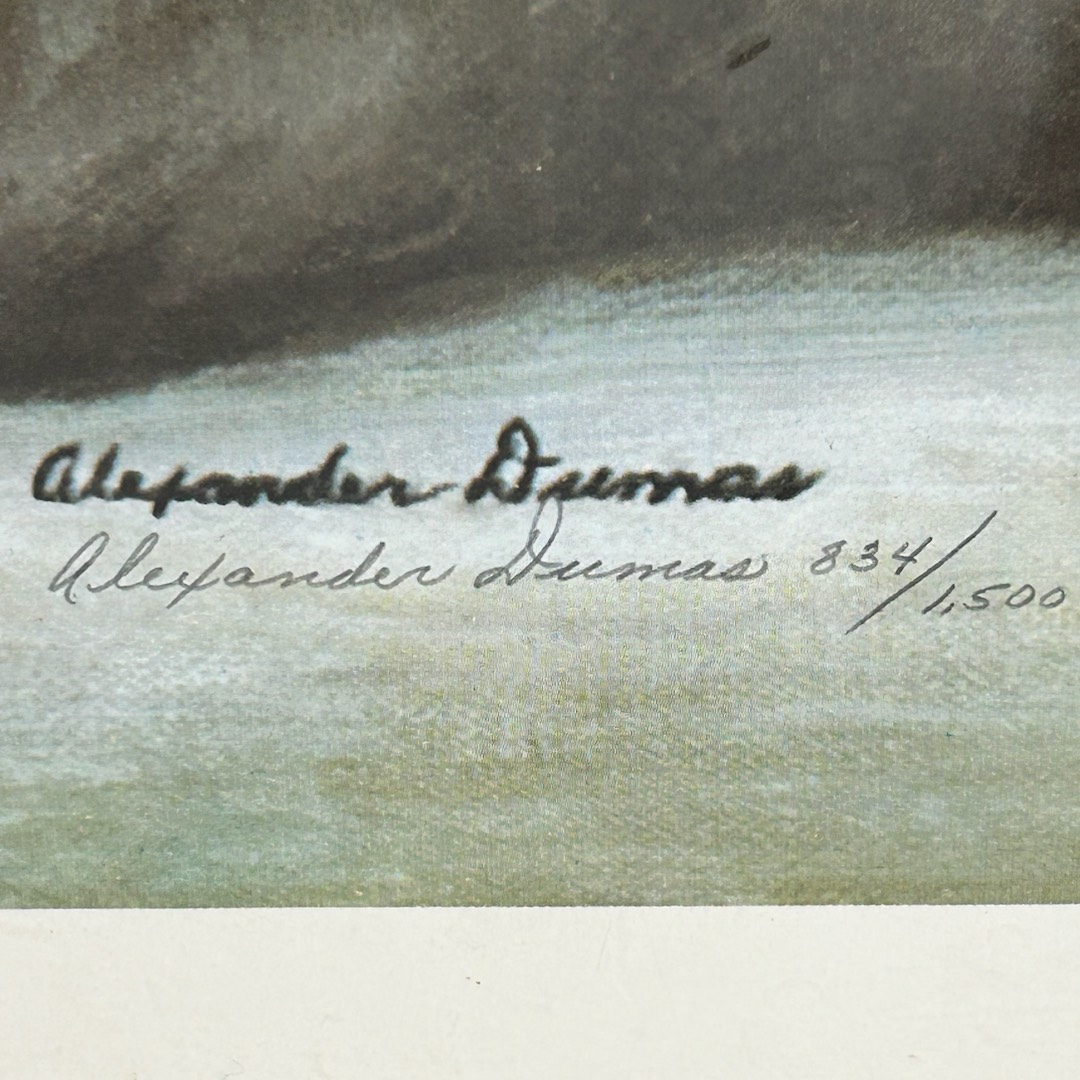 Alexander Dumas
Alexander Dumas 834/1,500